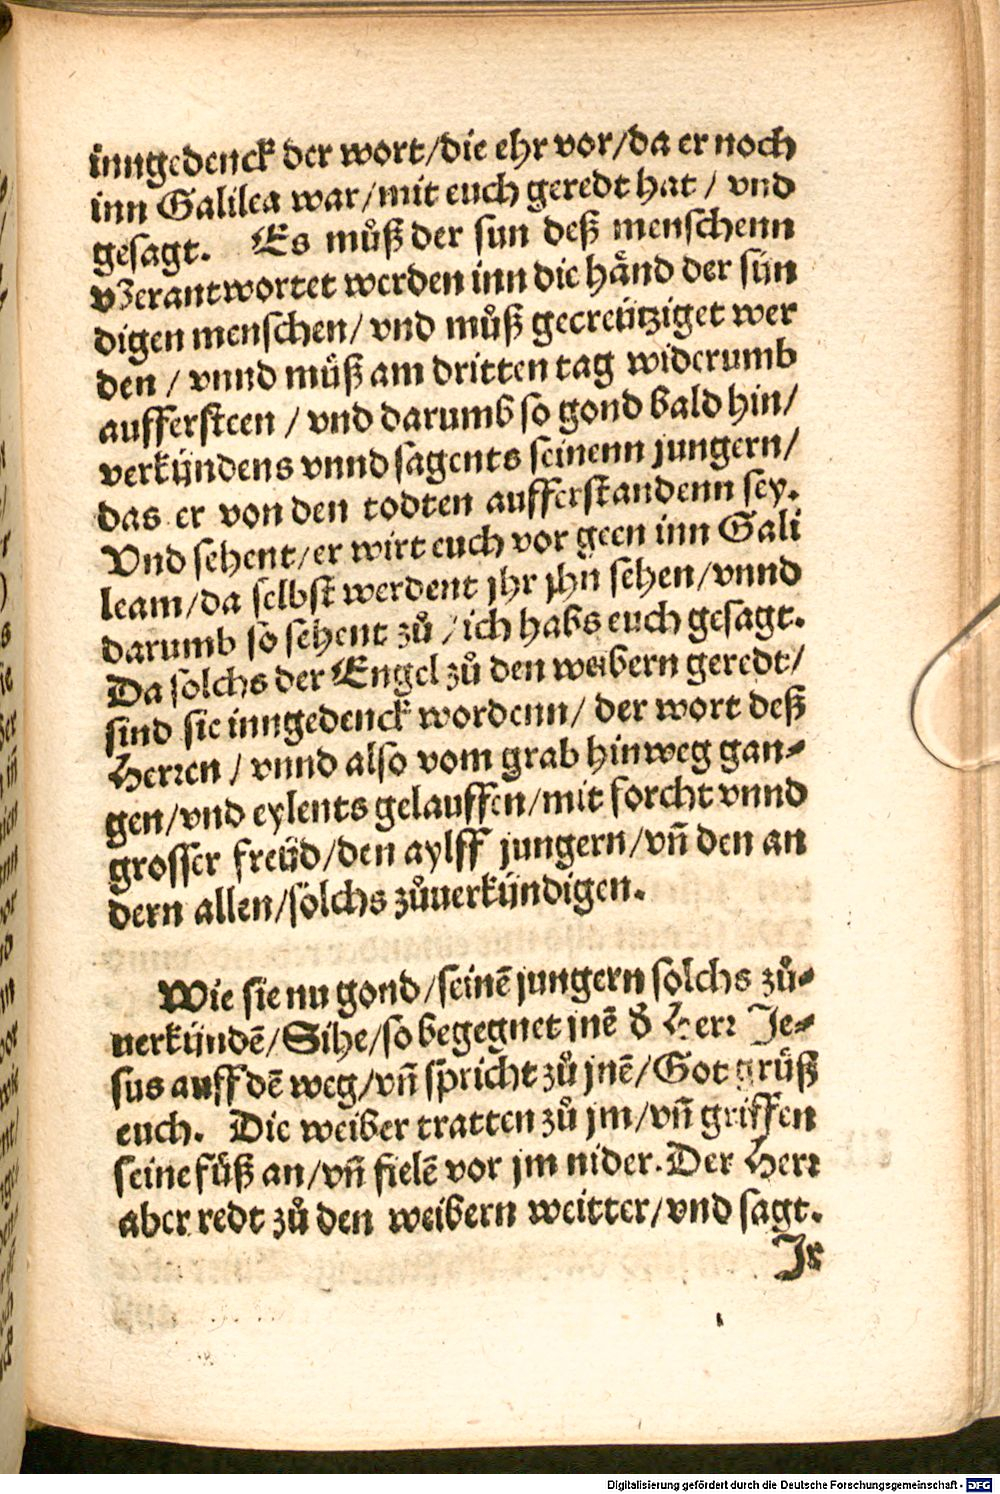 inngedenck der wort/die ehr vor/da er noch
inn Galilea war/mit euch geredt hat / vnd
gesagt. Es muͦß der sun deß menschenn
vberantwortet werden inn die händ der sün
digen menschen/ vnd muͦß gecreütziget wer
den / vnnd muͦß am dritten tag widerumb
auffersteen / vnd darumb so gond bald hin/
verkündens vnnd sagents seinenn jungern/
das er von den todten aufferstandenn sey.
Vnd sehent/er wirt euch vor geen inn Gali
leam/da selbst werdent jhr jhn sehen/vnnd
darumb so sehent zuͦ / ich habs euch gesagt.
Da solchs der Engel zuͦ den weibern geredt/
sind sie inngedenck wordenn/ der wort deß
Herren / vnnd also vom grab hinweg gan⸗
gen/vnd eylents gelauffen/mit forcht vnnd
grosser freüd/den aylff jungern/vñ den an
dern allen/sölchs zuͦuerkündigen.
Wie sie nu gond/seinē jungern solchs zuͦ⸗
uerkündē/Sihe/so begegnet jnē d̕ Herr Je⸗
sus auff dē weg/vñ spricht zuͦ jnē/Got grüß
euch. Die weiber tratten zuͦ jm/vñ griffen
seine füß an/vñ fielē vor jm nider.Der Herr
aber redt zuͦ den weibern weitter/vnd sagt.
Jr
Digitalisierung gefördert durch die Deutsche Forschungsgemeinschaft - DFG